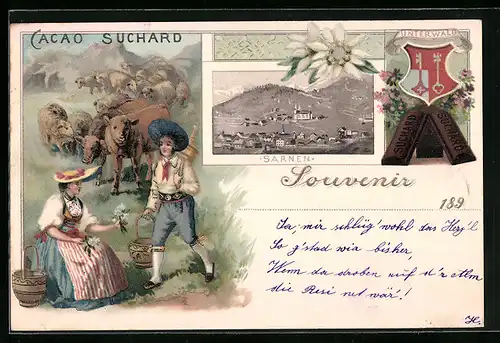 CACAO SUCHARD
UNTERWALD
SUCHARD SUCHARD
SARNEN
Souvenir
189
Ja mir schlüg' wohl das Herz'l
So g'stad wia bisher,
Wenn da droben auf d'r Alm
die Resi net wär'!
H.